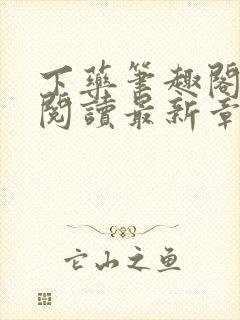 下藥筆趣閣
閱讀最新章
它山之鱼